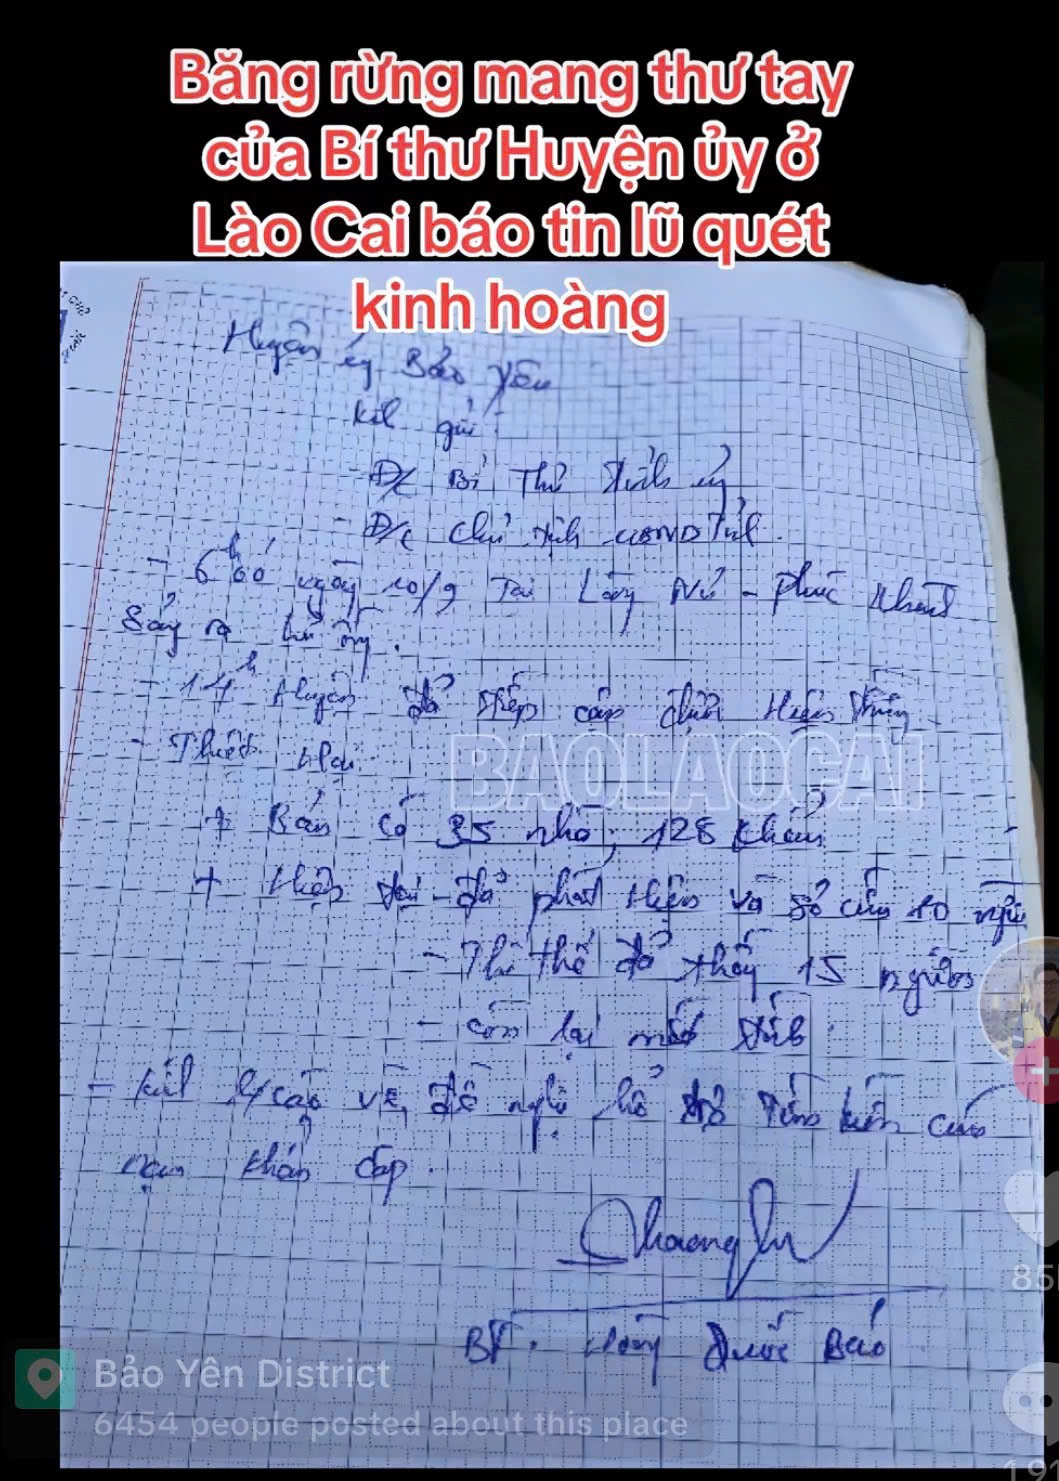 Băng rừng mang thư tay
của Bí thư Huyện ủy ở
Lào Cai báo tin lũ quét
kinh hoàng
Huyện ủy Bảo Yên
Kính gửi:
- Đ/c Bí Thư Tỉnh ủy
- Đ/c Chủ tịch UBND Tỉnh.
- 6h00 ngày 10/9 Tại Làng Nủ - Phúc Khánh
Sảy ra lũ ống.
- 14h Huyện đã tiếp cận được Hiện trường
- Thiệt Hại:
BAOLAOCAI
+ Bản có 35 nhà; 128 khẩu
+ Hiện tại đã phát hiện và sơ cứu 10 người
- Thi thể đã thấy 15 người
- còn lại mất tích.
- Kính B/cáo và đề nghị hỗ trợ Tìm kiếm cứu
nạn khẩn cấp.
BT. Hoàng Quốc Bảo
85
Bảo Yên District
6454 people posted about this place
191